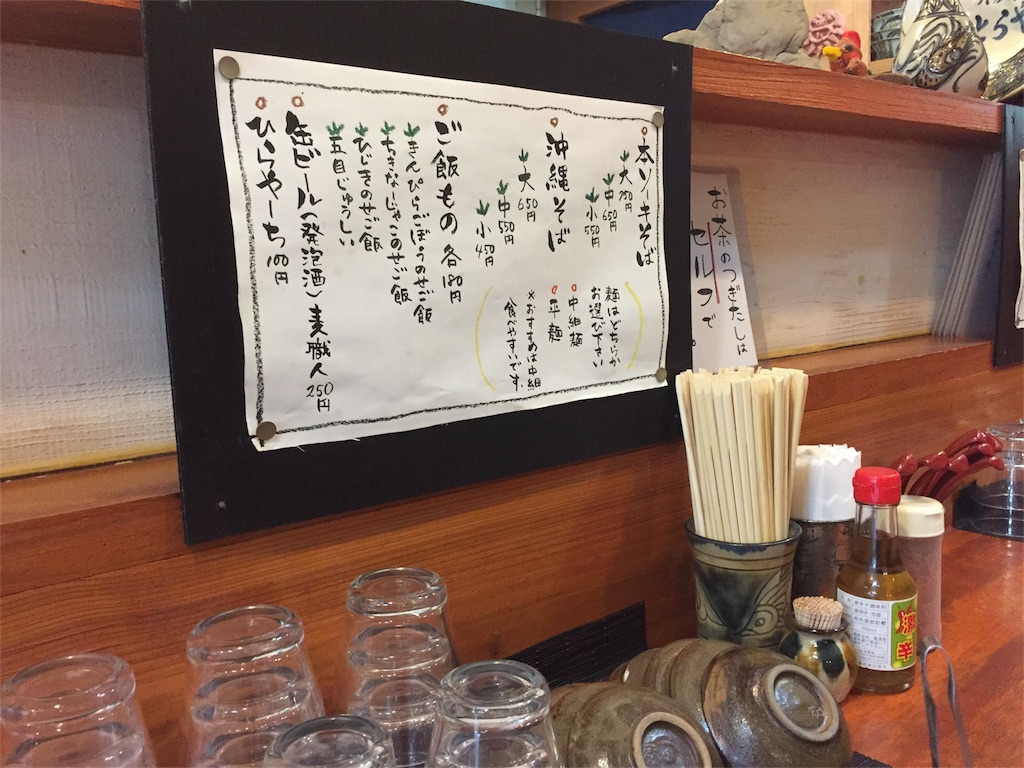 本ソーキそば
大 750円
中 650円
小 550円
沖縄そば
大 650円
中 550円
小 450円
麺はどちらか
お選び下さい
中細麺
平麺
※おすすめは中細
食べやすいです。
ご飯もの 各180円
きんぴらごぼうのせご飯
ちきなーじゃこのせご飯
ひじきのせご飯
五目じゅうしい
缶ビール(発泡酒)麦職人 250円
ひらやーち 100円
お茶のつぎたしは
セルフで。
激辛